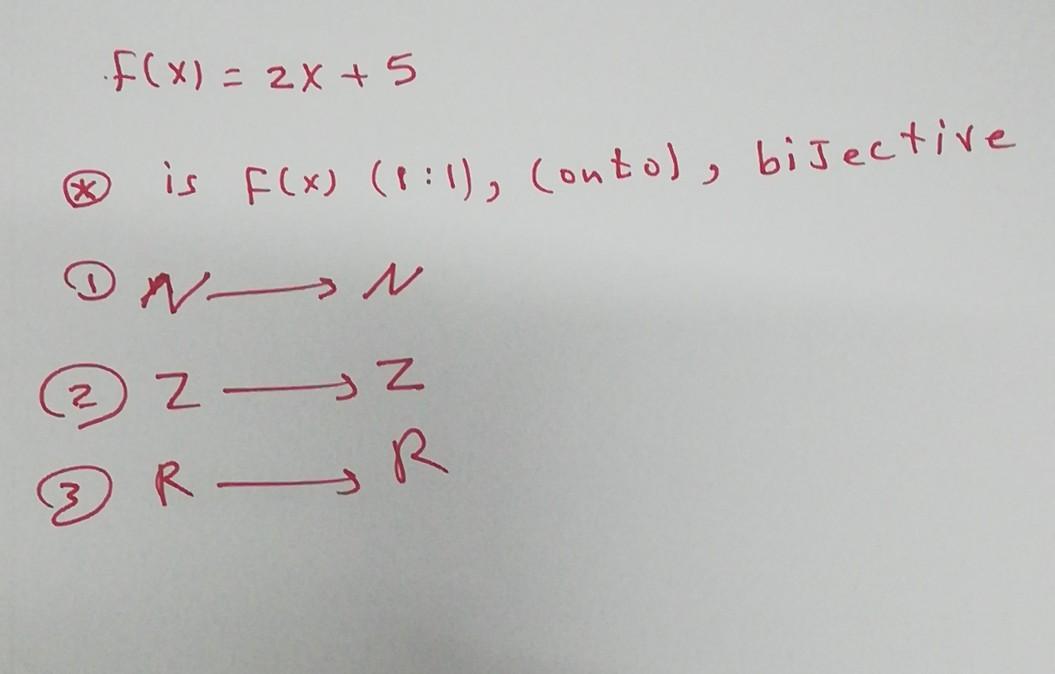 F(x) = 2x + 5
⊛ is F(x) (1:1), (onto), biJective
① N ⟶ N
② Z ⟶ Z
③ R ⟶ R